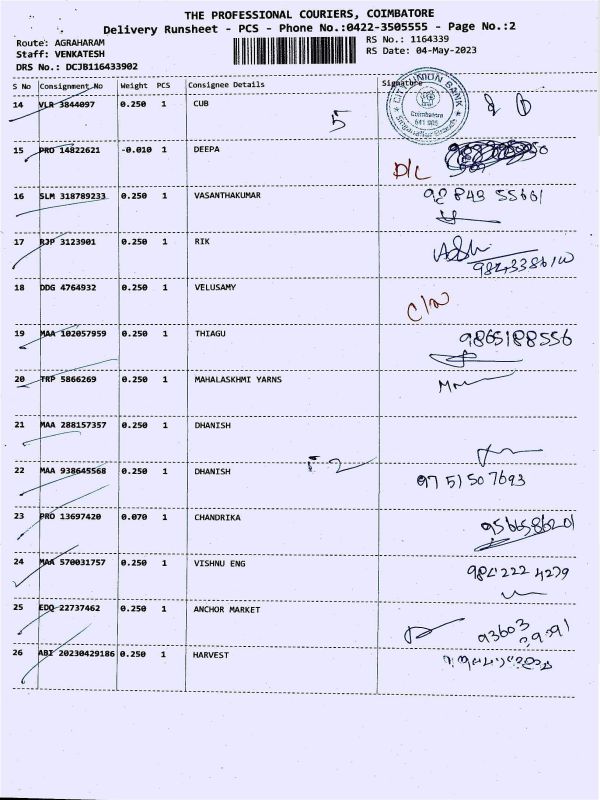 THE PROFESSIONAL COURIERS, COIMBATORE
Delivery Runsheet - PCS - Phone No.:0422-3505555 - Page No.:2
Route: AGRAHARAM
RS No.: 1164339
Staff: VENKATESH
RS Date: 04-May-2023
DRS No.: DCJB116433902
S No Consignment No Weight PCS Consignee Details Signature
14 VLR 3844097 0.250 1 CUB 5
CITY UNION BANK
Coimbatore
641 005
15 PRO 14822621 -0.010 1 DEEPA D/L
16 SLM 318789233 0.250 1 VASANTHAKUMAR 98 843 55661
17 RJP 3123901 0.250 1 RIK
18 DDG 4764932 0.250 1 VELUSAMY
19 MAA 102057959 0.250 1 THIAGU 9865188556
20 TRP 5866269 0.250 1 MAHALASKHMI YARNS
21 MAA 288157357 0.250 1 DHANISH
22 MAA 938645568 0.250 1 DHANISH 97 51 50 7693
23 PRO 13697420 0.070 1 CHANDRIKA
24 MAA 570031757 0.250 1 VISHNU ENG 984222 4279
25 EDQ 22737462 0.250 1 ANCHOR MARKET
26 ABI 20230429186 0.250 1 HARVEST